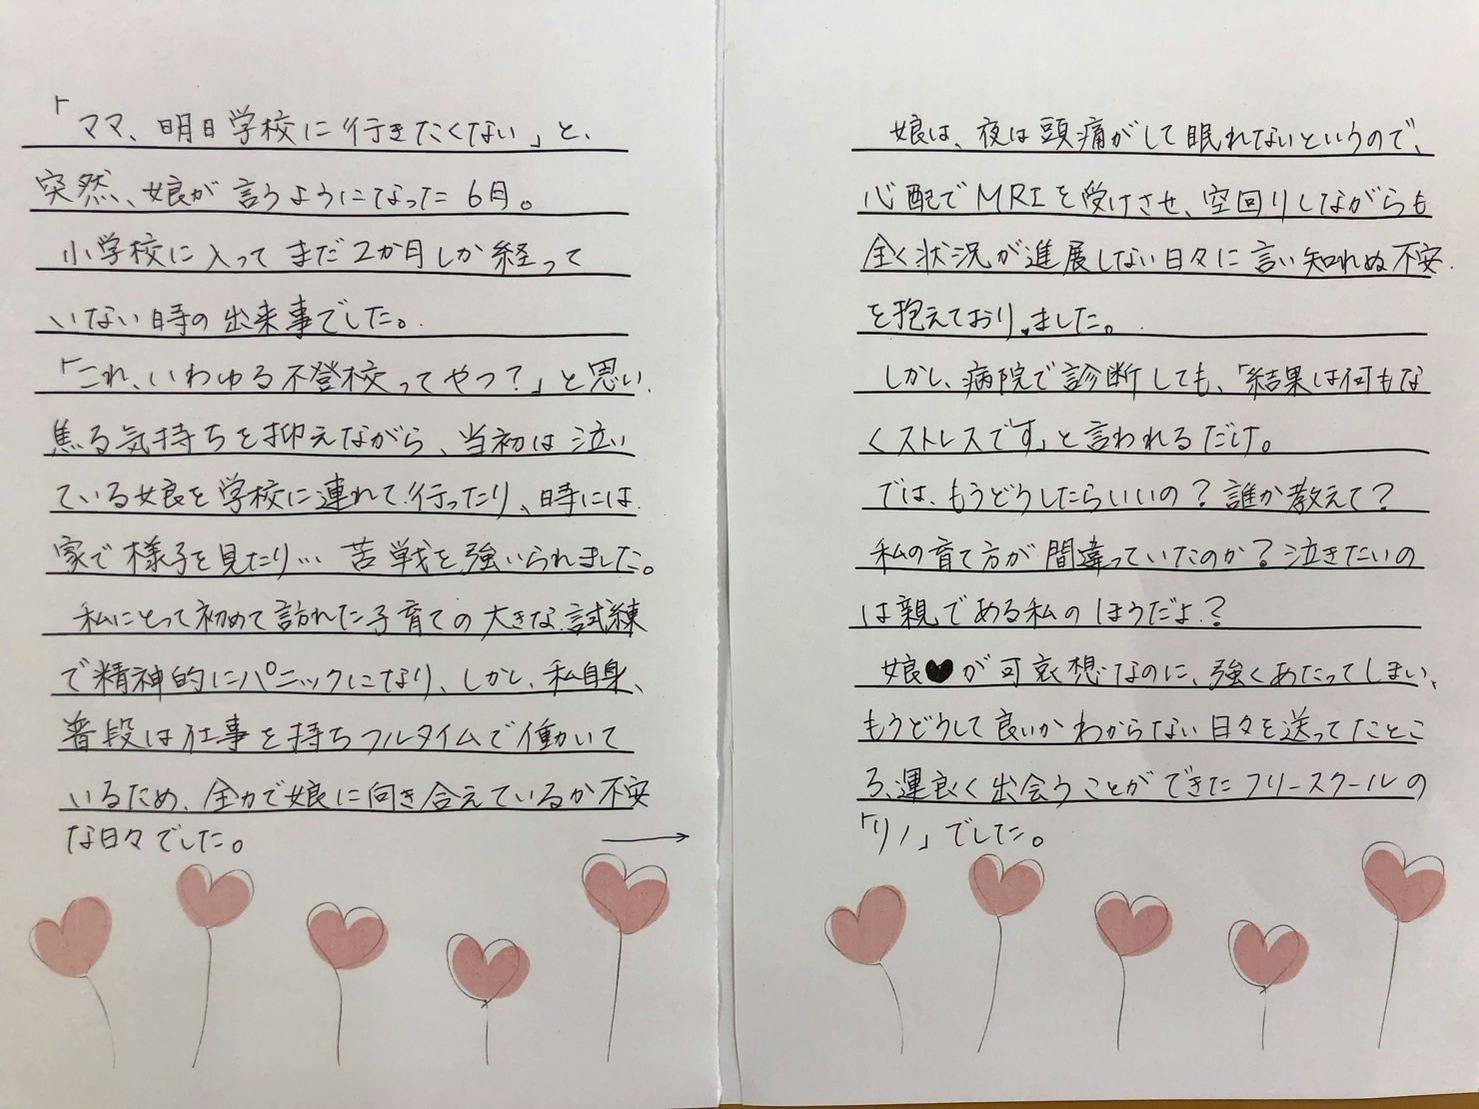 「ママ、明日学校に行きたくない」と、
突然、娘が言うようになった6月。
小学校に入ってまだ2か月しか経って
いない時の出来事でした。
「これ、いわゆる不登校ってやつ？」と思い、
焦る気持ちを抑えながら、当初は泣い
ている娘を学校に連れて行ったり、時には
家で様子を見たり…苦戦を強いられました。
私にとって初めて訪れた子育ての大きな試練
で精神的にパニックになり、しかし、私自身、
普段は仕事を持ちフルタイムで働いて
いるため、全力で娘に向き合えているか不安
な日々でした。 →
娘は、夜は頭痛がして眠れないというので、
心配でMRIを受けさせ、空回りしながらも
全く状況が進展しない日々に言い知れぬ不安
を抱えておりました。
しかし、病院で診断しても、「結果は何もな
くストレスです」と言われるだけ。
では、もうどうしたらいいの？誰か教えて？
私の育て方が間違っていたのか？泣きたいの
は親である私のほうだよ？
娘♥が可哀想なのに、強くあたってしまい、
もうどうして良いかわからない日々を送ってたとこ
ろ、運良く出会うことができたフリースクールの
「リノ」でした。